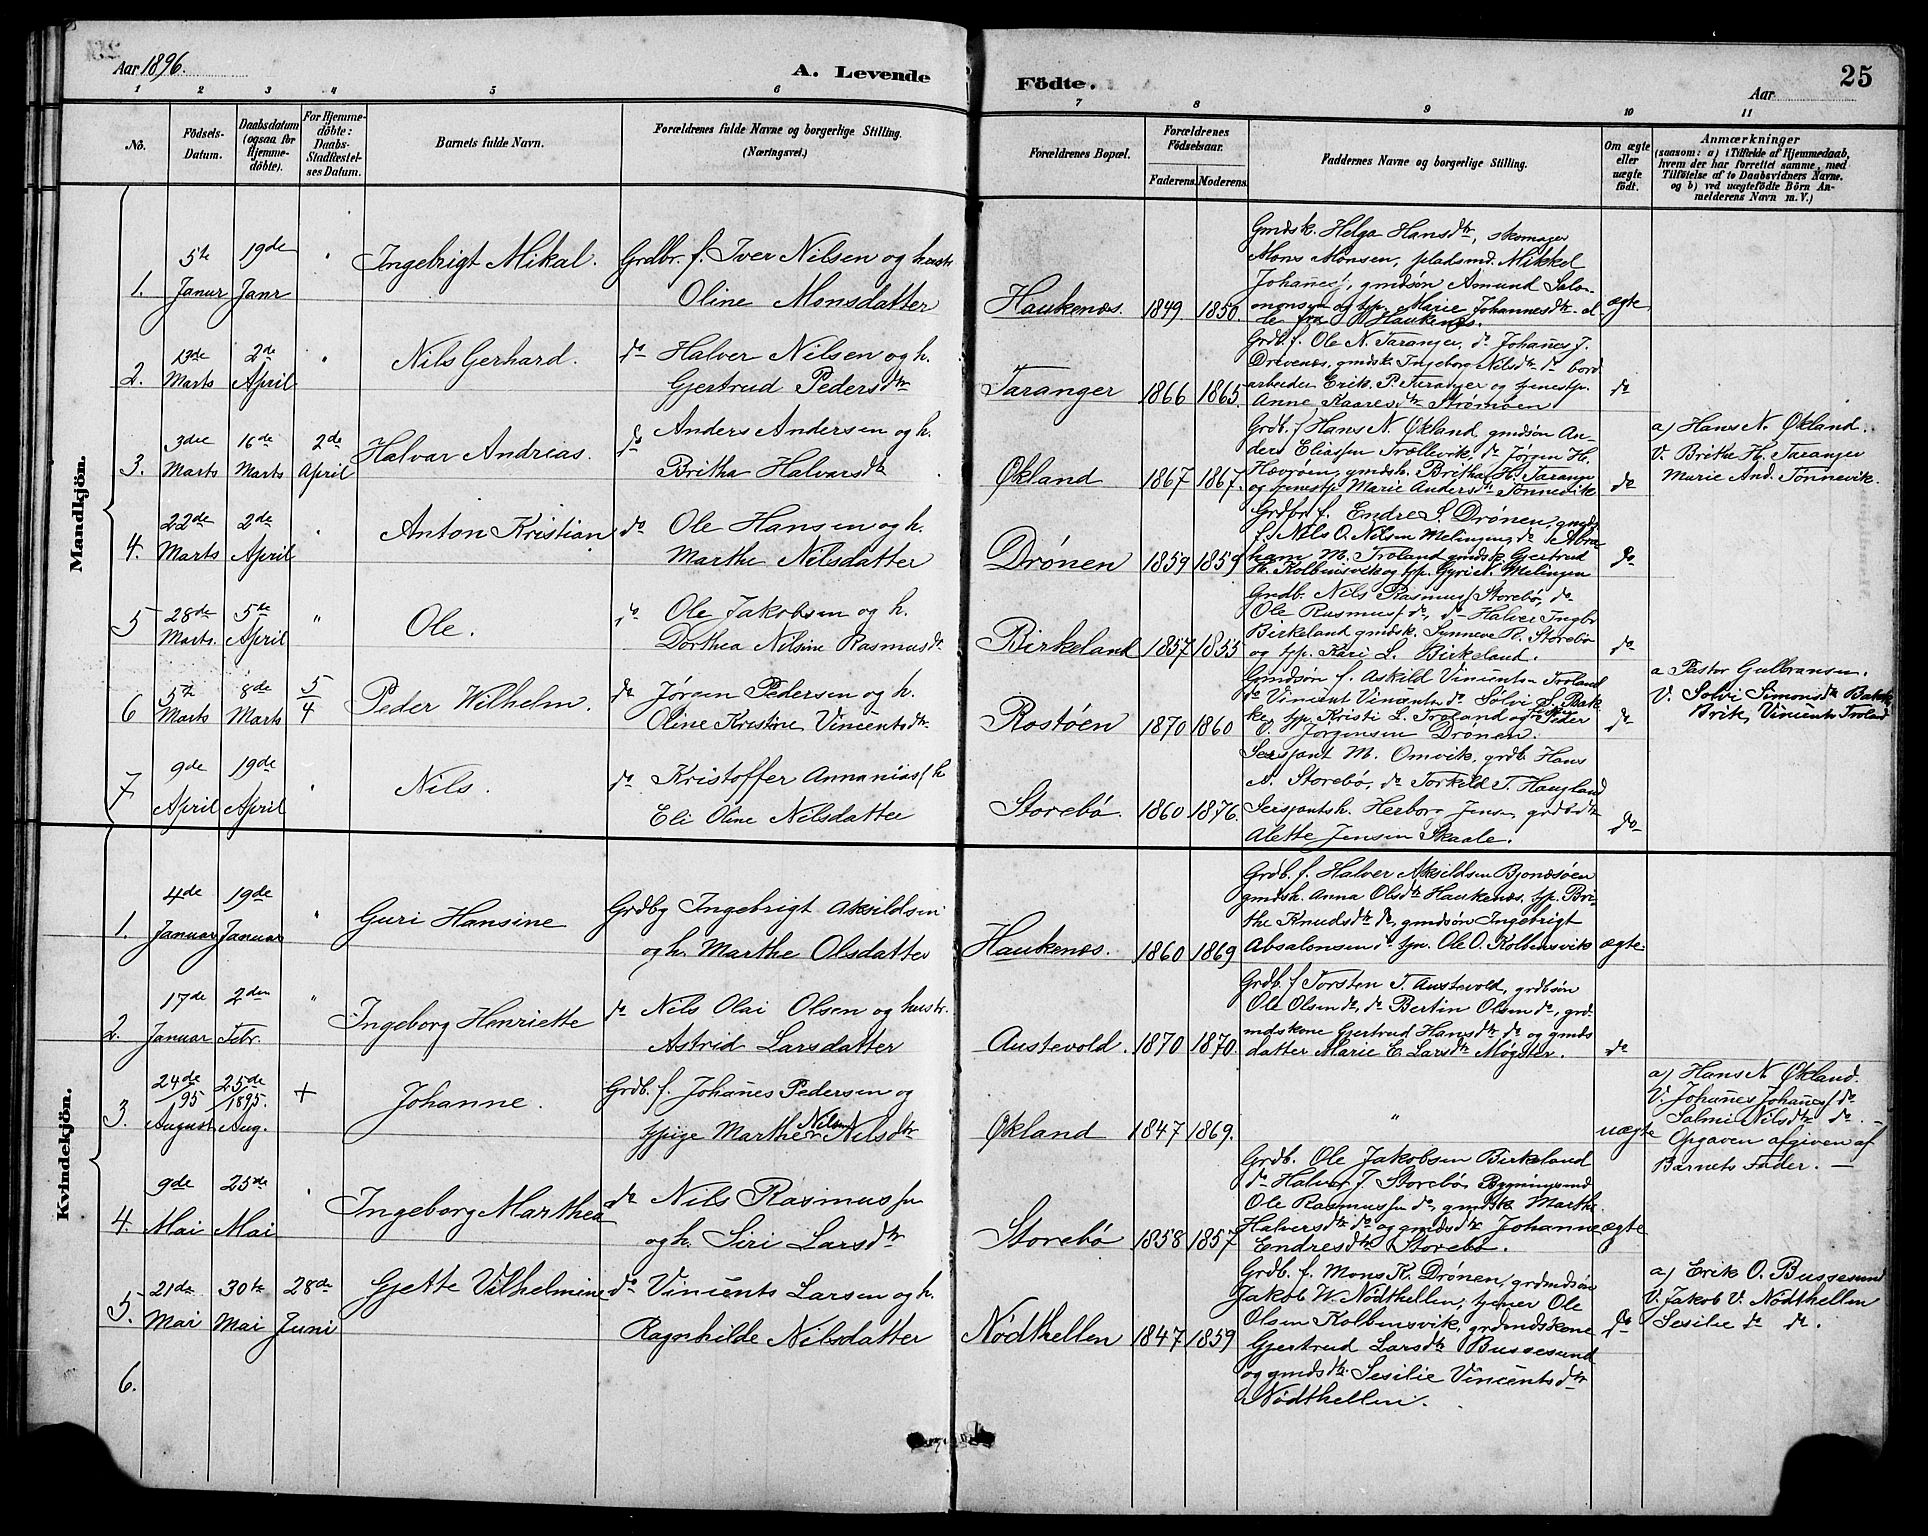 Aar 1896.
A. Levende
Födte.
25
Aar
1 2 3 4 5 6 7 8 9 10 11
No.
Födsels-
Datum.
Daabsdatum
(ogsaa for
Hjemme-
döbte).
For Hjemme-
döbte:
Daabs-
Stadfæstel-
ses Datum.
Barnets fulde Navn.
Forældrenes fulde Navne og borgerlige Stilling.
(Næringsvei.)
Forældrenes Bopæl.
Forældrenes
Födselsaar.
Faderens. Moderens.
Faddernes Navne og borgerlige Stilling.
Om ægte
eller
uægte
födt.
Anmærkninger
(saasom: a) i Tilfælde af Hjemmedaab,
hvem der har forrettet samme, med
Tilföielse af to Daabsvidners Navne,
og b) ved uægtefödte Börn An-
melderens Navn m. V.)
Mandkjön.
1.
5te
Janur
19de
Janr
"
Ingebrigt Mikal.
Grdbr. f. Iver Nilsen og hustr
Oline Monsdatter
Haukenæs.
1849 1850.
Gmdsk. Helga Hansdtr, skomager
Mons Monsen, pladsmd. Mikkel
Johanes/, gmdsön Amund Salo-
monsen og tjp. Marie Johannesdtr. al-
le fra Haukenæs.
ægte
2.
19de
Marts
2de
April
"
Nils Gerhard.
do Halver Nilsen og h.
Gjertrud Pedersdtr
Taranger
1866 1865.
Grdb. f. Ole N. Taranger, do Johanes J.
Drevenæs, gmdsk. Ingeborg Nilsdtr do bord
arbeider Erik P. Taranger og tjenestp.
Anne Kaaresdtr Strömöen
do
3.
3die
Marts
16de
Marts
2de
April
Halvar Andreas.
do Anders Andersen og h.
Britha Halvarsdtr
Økland
1867 1867.
Grdb. f Hans N Økland, gmdsön An-
ders Eliassen Trællevik, do Jørgen H.
Hevröen, gmdsk. Britha H. Tarange
og tjenestp Marie Andersdtr Tönnevik
do
a) Hans N. Økland.
V. Brithe H. Taranger
Marie And. Tönnevik.
4.
22de
Marts
2de
April
"
Anton Kristian
do Ole Hansen og h.
Marthe Nilsdatter
Drönen
1859 1859
Grdbr f. Endre S. Drönen, gmds
f. Nils O. Nilsen Melingen, do Abra
ham M. Troland gmdsk Gjertrud
H. Kolbensvik og tjp. Gyri N. Melingen
do
5
28de
Marts.
5de
April
"
Ole.
do Ole Jakobsen og h.
Dorthea Nilsine Rasmusdr
Birkeland
1857 1855
Grdb. Nils Rasmus/ Storebö, do
Ole Rasmus/ do, do Halver Ingbr
Birkeland gmdsk. Synneve R. Storebö
og tjp. Kari L. Birkeland.
do
6
5te
Marts
8de
Marts
5
4
Peder Wilhelm.
do Jörgen Pedersen og h.
Oline Kristine Vincentsdtr
Rostöen
1870 1860
Gmdsön f. Askild Vincents. Troland
do Vincent Vincents. do Sölvi S. Bak
ke, tjp. Kristi L. Troland og Peder
Jörgensen Drönen.
do
a Pastor Gulbransen.
V. Solvi Simonsdtr Bakk
Brite, Vincents Troland
7
9de
April
19de
April
"
Nils.
do Kristoffer Annanias/ h
Eli Oline Nilsdatter
Storebö.
1860 1876.
Sersjant M. Omvik, grdb. Hans
N. Storebö, do Torkild T. Haugland
Sersjantsk. Herborg Jensen grdbdtr
Alette Jensen Skaale.
do
Kvindekjön.
1.
4de
Januar
19de
Januar
"
Guri Hansine
Grdbg Ingebrigt Aksildsen
og h. Marthe Olsdatter
Haukenæs.
1860 1869
Grdb. f. Halver Aksildsen Bjonesöen
gmdsk. Anna Olsdtr Haukenæs. tjp. Bri-
the Knudsdtr do, gmdsön Ingebrigt
Absalonsen do tjnr. Ole O. Kolbensvik
ægte
2.
17de
Januar
2den
Febr.
"
Ingeborg Henriette
do Nils Olai Olsen og hustr.
Astrid Larsdatter
Austevold.
1870 1870.
Grdb. f Torsten T. Austevold, grdbsön
Ole Olsen do, do Bertin Olsen do, grd-
mdskone Gjertrud Hansdtr do og gmds
datter Marie E. Larsdtr Møgster.
do
3.
24de
/95
August
25de
/1895.
Aug.
+
Johanne.
Grdb. f. Johanes Pedersen og
tpige Marthe Nilsen Nilsdtr
Økland
1847 1869.
"
uægte
a) Hans N. Økland.
V. Johanes Johanes/ do
Salmi Nilsdtr do. -
Opgaven afgiven af
Barnets Fader. —
4.
9de
Mai
25de
Mai
"
Ingeborg Marthea
do Nils Rasmussen
og h. Siri Larsdtr
Storebö
1858 1857
Grdb. Ole Jakobsen Birkeland
do Halver J. Storebö Bygningsmd
Ole Rasmussen do, gmdsk Marthe
Halversdtr do og gmdsdtr Johanne
Endresdtr Storebö.
ægte
5.
21de
Mai
30te
Mai
28de
Juni
Gjette Vilhelmine
do Vincents Larsen og h.
Ragnhilde Nilsdatter
Nödthellen
1847 1859
Grdb. f. Mons K. Drönen, grdmdsön
Jakob W. Nödthellen, tjener Ole
Olsen Kolbensvik, grdmdskone
Gjertrud Larsdtr Bussesund
og gmdsdtr. Sesilie Vincentsdtr
Nödthellen.
do
a) Erik O. Bussesund
V. Jakob V. Nödthellen
Sesilie do do.
6.